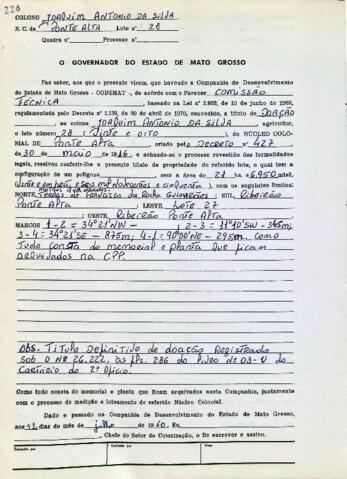 226
COLONO JOAQUIM ANTONIO DA SILVA
N. C. de PONTE ALTA Lote nº 28
Quadra nº Processo nº
O GOVERNADOR DO ESTADO DE MATO GROSSO
Faz saber, aos que o presente virem, que havendo a Companhia de Desenvolvimento
do Estado de Mato Grosso - CODEMAT -, de acôrdo com o Parecer COMISSÃO
TÉCNICA, baseado na Lei nº 2.983, de 10 de junho de 1969,
regulamentada pelo Decreto nº 1.138, de 30 de abril de 1970, outorgado, a título de DOAÇÃO
, ao colono JOAQUIM ANTONIO DA SILVA agricultor,
o lote número 28 (Vinte e oito), do NÚCLEO COLO-
NIAL DE PONTE ALTA, criado pelo DECRETO nº 427
de 30 de maio de 1946, e achando-se o processo revestido das formalidades
legais, resolveu conferir-lhe o presente título de propriedade do referido lote, o qual tem a
configuração de um polígono sem a área de 21 ha. e 6950 m².
com os seguintes limites:
NORTE, Terras de da Rocha Guimarães; SUL, Ribeirão
Ponte Alta; LESTE, Lote 27
; OESTE Ribeirão Ponte Alta
MARCOS 1-2 = 34º21'NW - ; 2-3 = 11º10'SW - 345m;
3-4 = 34º21'SE - 875m; 4-1 = 90º00'NE - 295m. como
Tudo consta do memorial e planta que ficam
arquivados na CPP.
Obs. Titulo Definitivo de doação Registrado
sob o Nº 26.222, às fls. 286 do Livro Nº 03-V do
Cartório do 2º Ofício.
Como tudo consta do memorial e planta que ficam arquivados nesta Companhia, juntamente
com o processo de medição e loteamento do referido Núcleo Colonial.
Dado e passado na Companhia de Desenvolvimento do Estado de Mato Grosso,
aos 12 dias do mês de julho de 1960. Eu,
, Chefe do Setor de Colonização, o fiz escrever e assino.